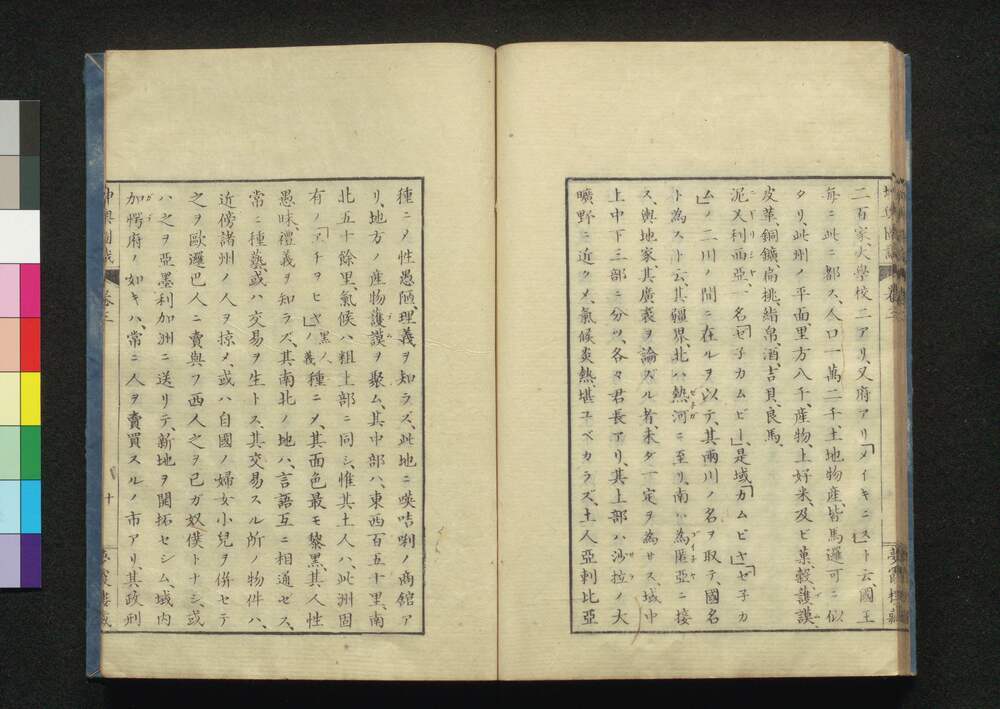 二百家大學校二アリ又府アリ「メイキニスト」ト云、國王
毎ニ此ニ都ス、人口一萬二千、土地物産、皆馬邏可ニ似
タリ、此州ノ平面里方八千、産物、上好米、及ビ菓、穀、護謨、
皮革、銅鑛、扁挑、絹帛、酒、吉貝、良馬、
泥又利西亞、一名「セ子カムビー」、是域「カムビヤ」「セ子カ
ム」ノ二川ノ間ニ在ルヲ以テ、其兩川ノ名ヲ取テ、國名
ト為スト云、其疆界、北ハ熱河ニ至リ、南ハ為匿亞ニ接
ス、輿地家、其廣袤ヲ論ズル者、未ダ一定ヲ為サス、域中
上中下三部ニ分ツ、各々君長アリ、其上部ハ沙拉ノ大
曠野ニ近クメ、氣候炎熱、堪ユベカラズ、土人亞剌比亞
種ニメ性愚陋、理義ヲ知ラズ、此地ニ暎咭唎ノ商舘ア
リ、地方ノ産物護謨ヲ聚ム、其中部ハ、東西百五十里、南
北五十餘里、氣候ハ粗上部ニ同シ、惟其土人ハ、此洲固
有ノ「エチヲヒヤ」黒人ノ義種ニメ、其面色最モ黎黒、其人性
愚昧、禮義ヲ知ラズ、其南北ノ地ハ、言語互ニ相通セス、
常ニ種藝、或ハ交易ヲ生トス、其交易スル所ノ物件ハ、
近傍諸州ノ人ヲ掠メ、或ハ自國ノ婦女小兒ヲ併セテ
之ヲ歐邏巴人ニ賣與フ西人之ヲ已ガ奴僕トナシ、或
ハ之ヲ亞墨利加洲ニ送リテ、新地ヲ開拓セシム、域内
加愕府ノ如キハ、常ニ人ヲ賣買スルノ市アリ、其政刑
坤輿圖識
卷三
十
夢霞樓藏